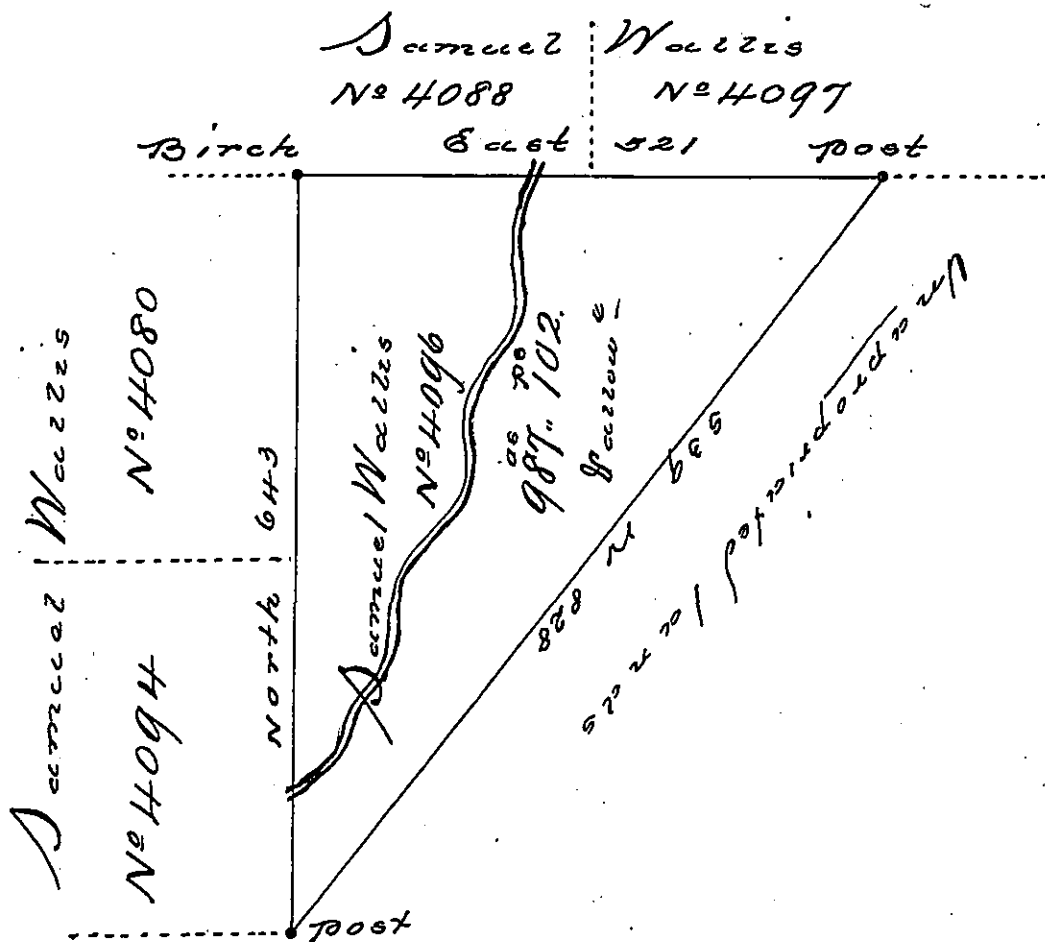 Samuel Wallis
Nº 4088 Nº 4097
Birch East 521 Post
Samuel Wallis
Nº 4080
Nº 4094
North 643
Samuel Wallis
Nº 4096
as ps
987.. 102.
S 39 W 828
Unapropriated Lands
Post